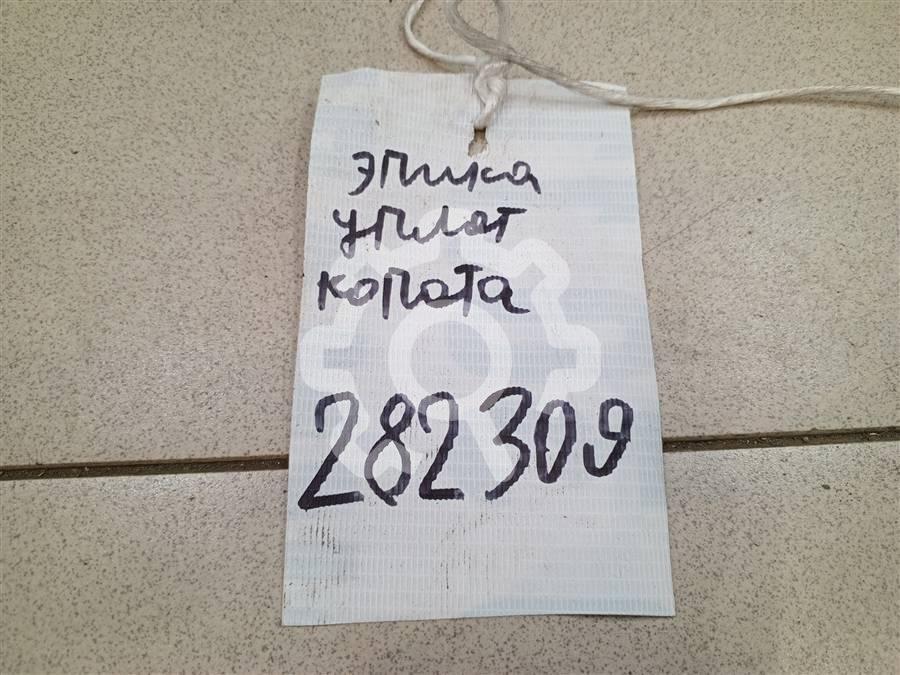 эпика
уплот
капота
282309